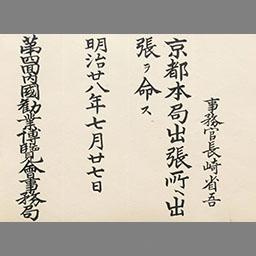 事務官長崎省吾
京都本局出張所ヘ出
張ヲ命ス
明治廿八年七月廿七日
第四回内國勧業博覧會事務局